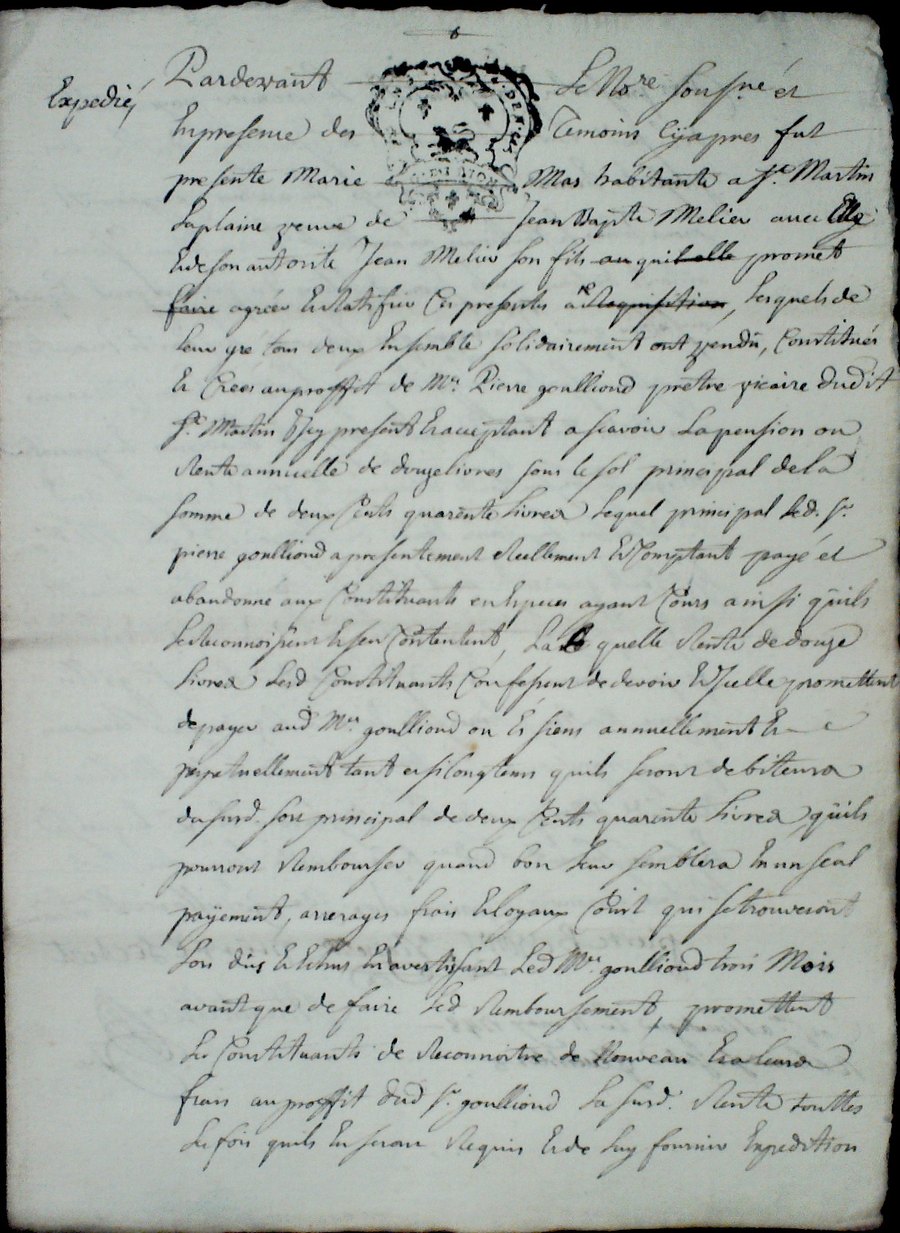 Expedié
Pardevant Le No.re sousne et
En presence des Temoins Cyapres fut
presente Marie Mas habitante a St. Martin
Laplaine veuve de Jean Bapte Melier avec Elle
Et de son autorite Jean Melier son fils au quil elle promet
faire agréer Et Ratifier Ces presents a re Requisition, Lesquels de
leur gré tous deux Ensemble solidairement ont vendu, Constitués
Et Créés au proffit de Mre Pierre goulliond pretre vicaire dudit
St. Martin Icy present Et acceptant a scavoir La pension ou
Rente annuelle de douze livres sous le sol principal de la
somme de deux Cents quarente Livres Lequel principal Led. Sr.
pierre goulliond a presentement Reellement Et Comptant payé et
abandonné aux Constituants en Especes ayant Cours ainsi quils
Le Reconnoissent Et sen Contentent, La quelle Rente de douze
Livres Lesd Constituants Confessent de devoir Et Icelle promettent
de payer aud Mre. goulliond ou Es siens annuellement Et
perpetuellement tant et si longtems quils seront debiteurs
du surd. sort principal de deux Cents quarente Livres quils
pourront Rembourser quand bon leur semblera En un seal
payement, arrerages frais Et loyaux Court qui se trouveront
Lors dus Et Echus En avertissant Led Mre. goulliond trois Mois
avant que de faire Led Remboursement, promettent
Les Constituants de Reconnoitre de Nouveau Et a leurs
frais au proffit dud Sr. goulliond La surd. Rente touttes
Les fois quils En seront Requis Et de Luy fournir Expedition